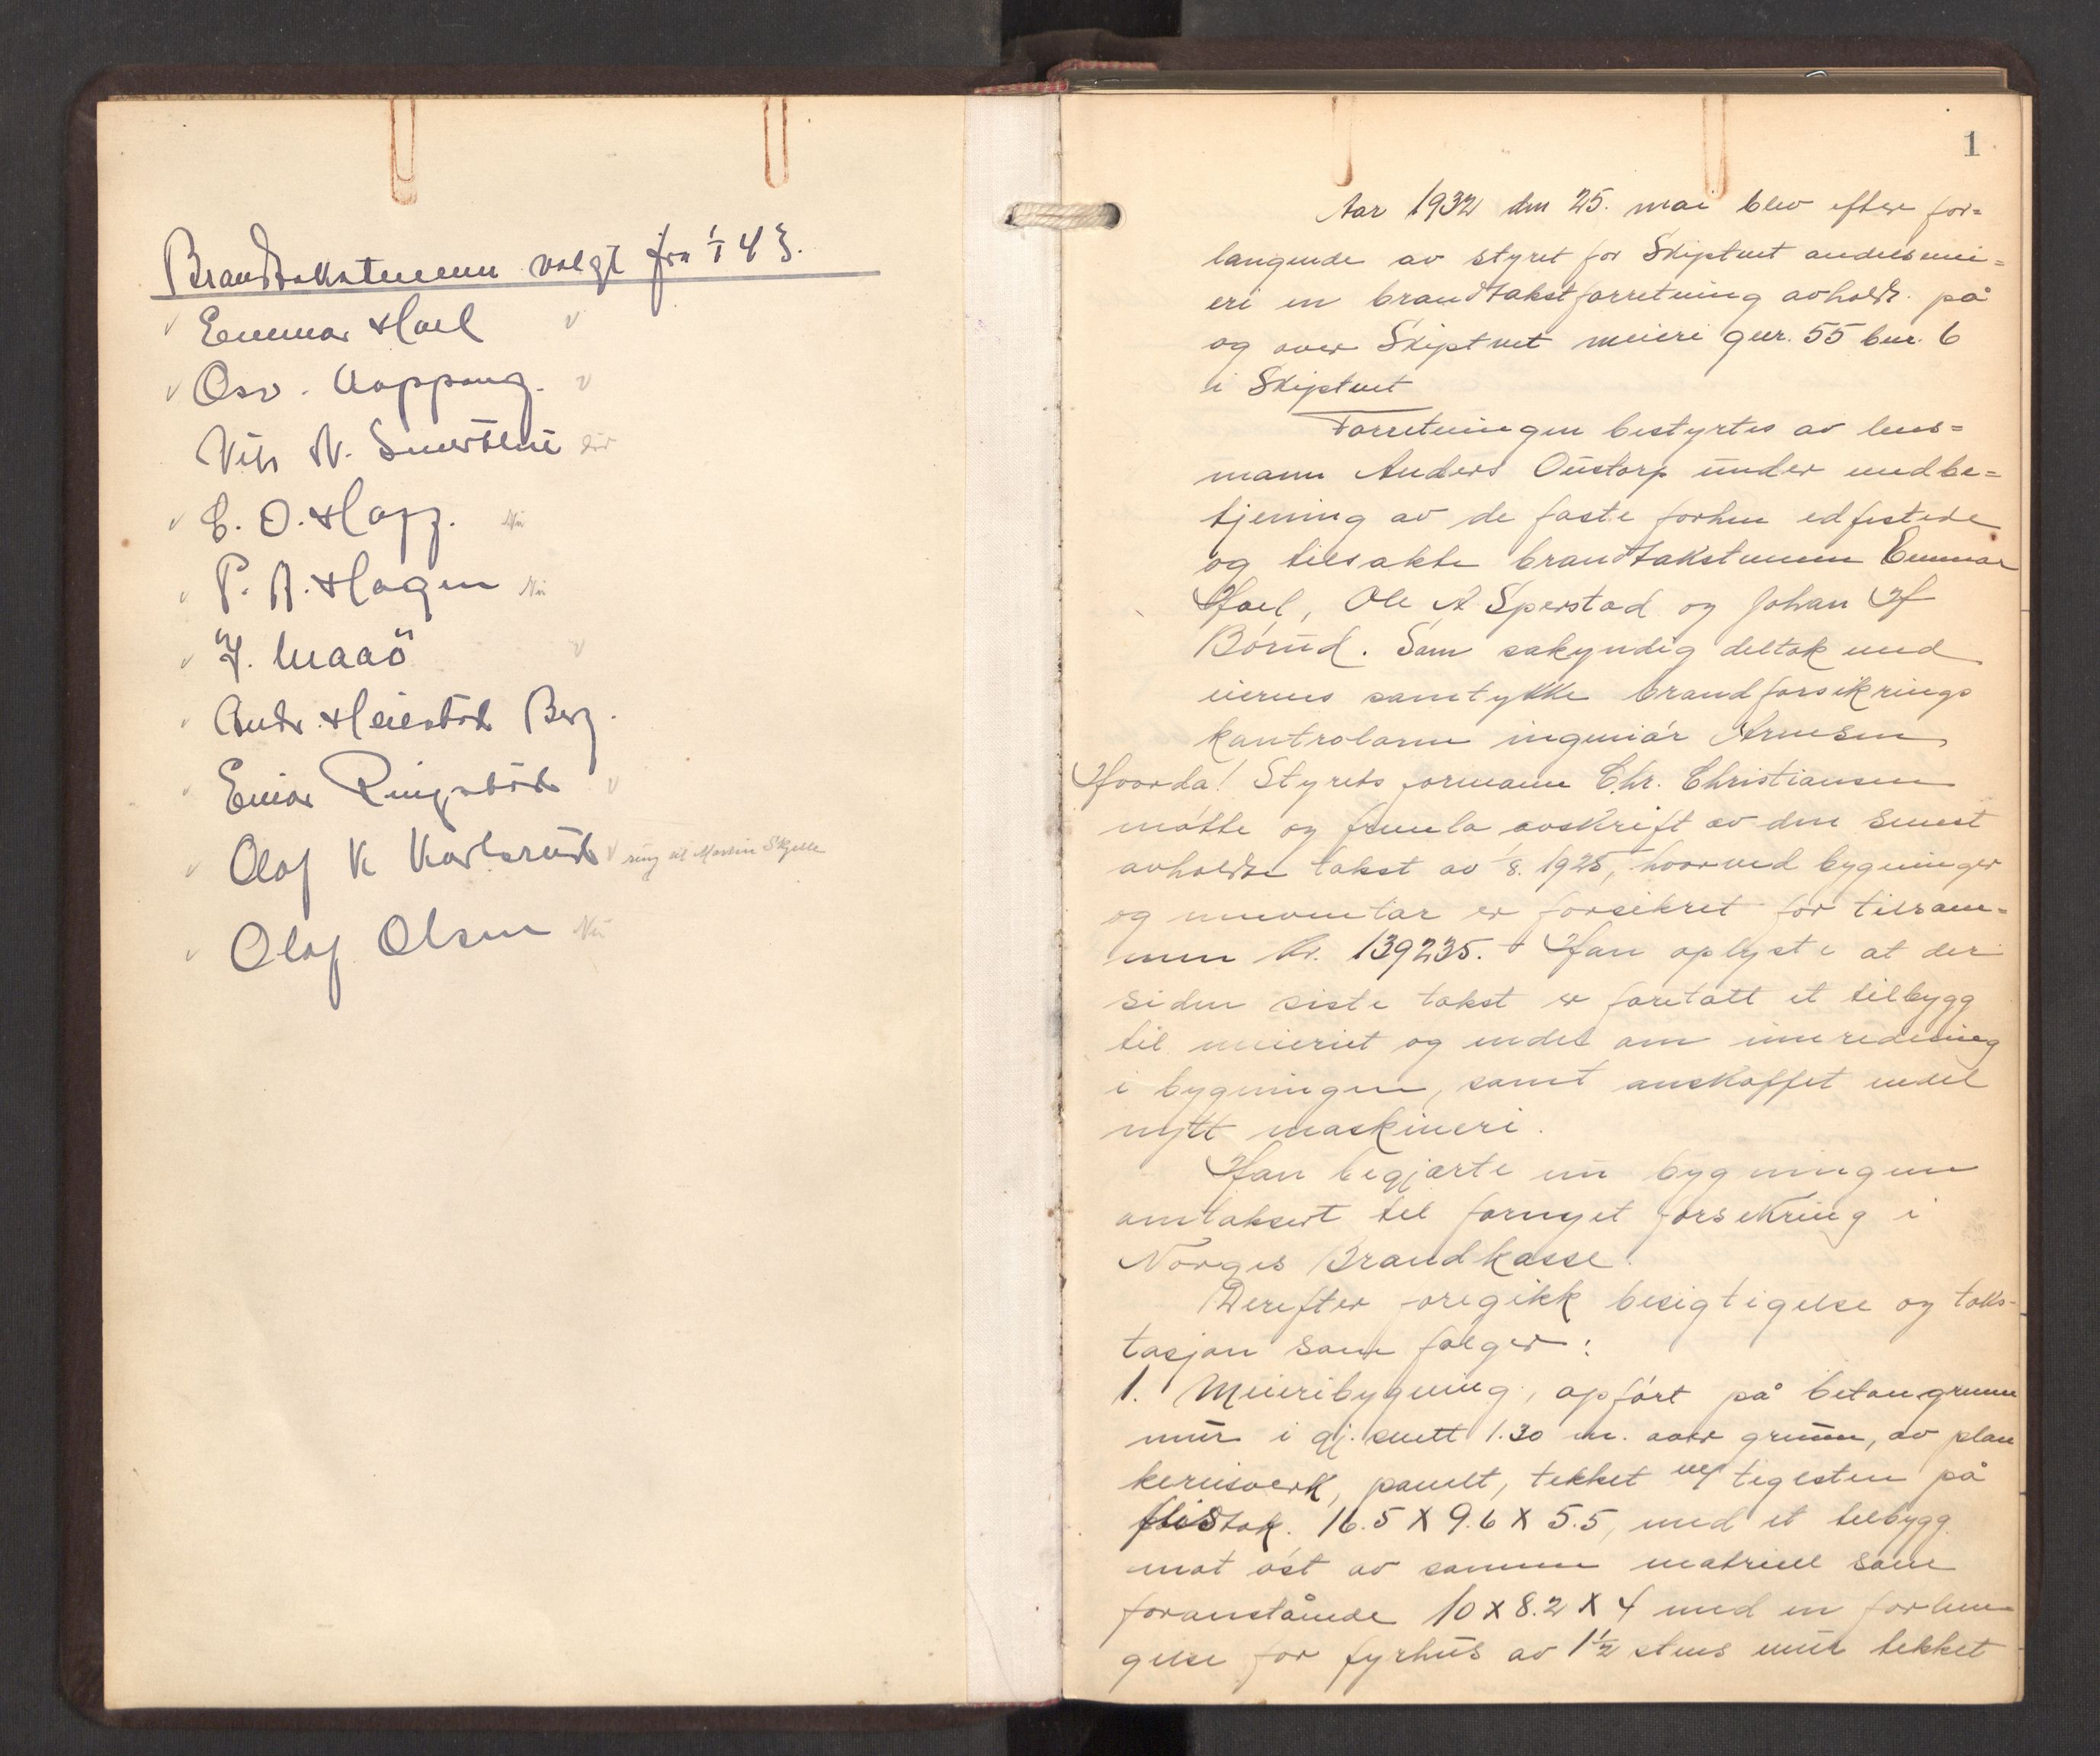 Brandtakstmenn valgt fra 1/1 43.
Emmar Hael
Osv. Koppang.
Nils N.
E. O. Hopp.
P. A. Hagen Nei
J. Maaö
Andr. Heiestad Berg.
Einar Ringstad
Olaf K Karlsrud ring til Martin Skjelle
Olaf Olsen Nei
1
Aar 1932 den 25. mai blev efter for=
langende av styret for Skiptvet andelsmei=
eri en brandtakstforretning avholdt på
og over Skiptvet meieri gnr. 55 bnr. 6
i Skiptvet
Forretningen bestyrtes av lens=
mann Anders Oustorp under medbe=
tjening av de faste forhen edfestede
og tilsakte brandtakstmenn Emmar
Hael, Ole A Sperstad og Johan H
Börud. Som sakyndig deltok med
eiernes samtykke brandforsikrings
kontrolörene ingeniör Arnesen
Hvorda! Styrets formann Chr. Christiansen
mötte og fremla avskrift av den senest
avholdte takst av 1/8. 1925, hvorved bygninger
og innventar er forsikret for tilsam=
men kr. 139235. Han oplyste at der
siden siste takst er foretatt et tilbygg
til meieriet og endel om innredning
i bygningen, samt anskaffet endel
nytt maskineri.
Han begjærte nu bygningene
omtaksert til fornyet forsikring i
Norges Brandkasse.
Derefter foregikk besigtigelse og taks-
tasjon som fölger:
1. Meieribygning, opfört på betongrunn
mur i gj. snett 1.30 m. over grunn, av plan
kereisverk, panelt, tekket m/ teglsten på
flistak. 16.5 X 9.6 X 5.5, med et tilbygg
mot öst av samme matriell som
foranstående 10 X 8.2 X 4 med en forlen
gelse for fyrhus av 1½ stens mur tekket